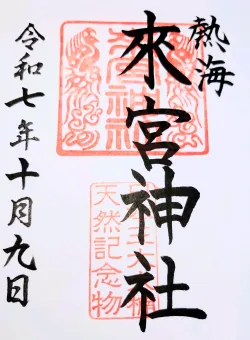 熱海
來宮神社
令和七年十月九日
天然記念物